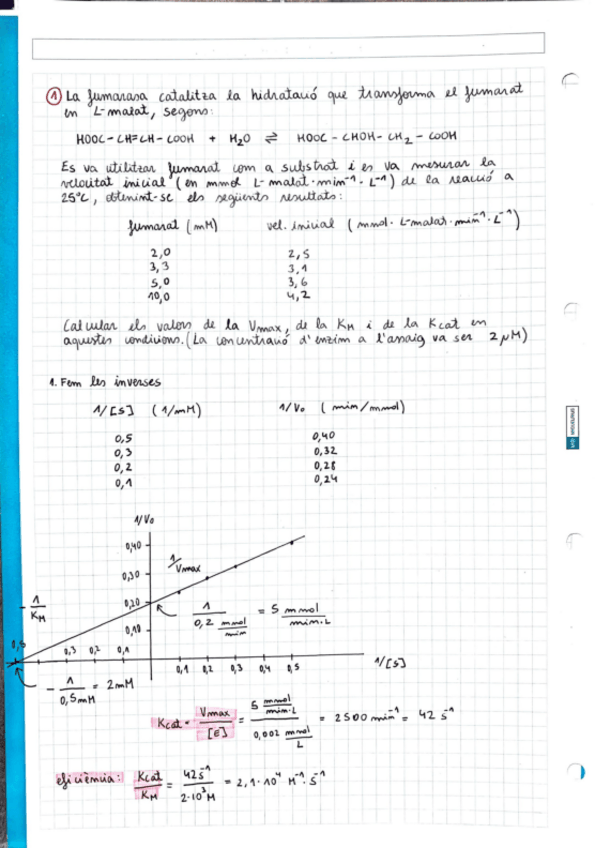 ① La fumarasa catalitza la hidratació que transforma el fumarat
en L-malat, segons:
HOOC-CH=CH-COOH + H₂O ⇌ HOOC-CHOH-CH₂-COOH
Es va utilitzar fumarat com a substrat i es va mesurar la
velocitat inicial (en mmol L-malat·min⁻¹·L⁻¹) de la reacció a
25°C, obtenint-se els següents resultats:
fumarat (mM) vel. inicial (mmol· L-malat·min⁻¹·L⁻¹)
2,0 2,5
3,3 3,1
5,0 3,6
10,0 4,2
Calcular els valors de la Vmax, de la KM i de la Kcat en
aquestes condicions. (La concentració d'enzim a l'assaig va ser 2μM)
1. Fem les inverses
1/[S] (1/mM) 1/Vo (min/mmol)
0,5 0,40
0,3 0,32
0,2 0,28
0,1 0,24
1/Vo
0,40
0,30
0,20
0,10
1/Vmax
-1/KM
1/0,2 mmol/min = 5 mmol/min·L
0,5 0,3 0,2 0,1 0,1 0,2 0,3 0,4 0,5 1/[S]
-1/0,5mM = 2mM
Kcat = Vmax/[E] = 5 mmol/min·L / 0,002 mmol/L = 2500 min⁻¹ = 42 s⁻¹
eficiència: Kcat/KM = 42s⁻¹/2·10³M = 2,1·10⁴ M⁻¹·s⁻¹